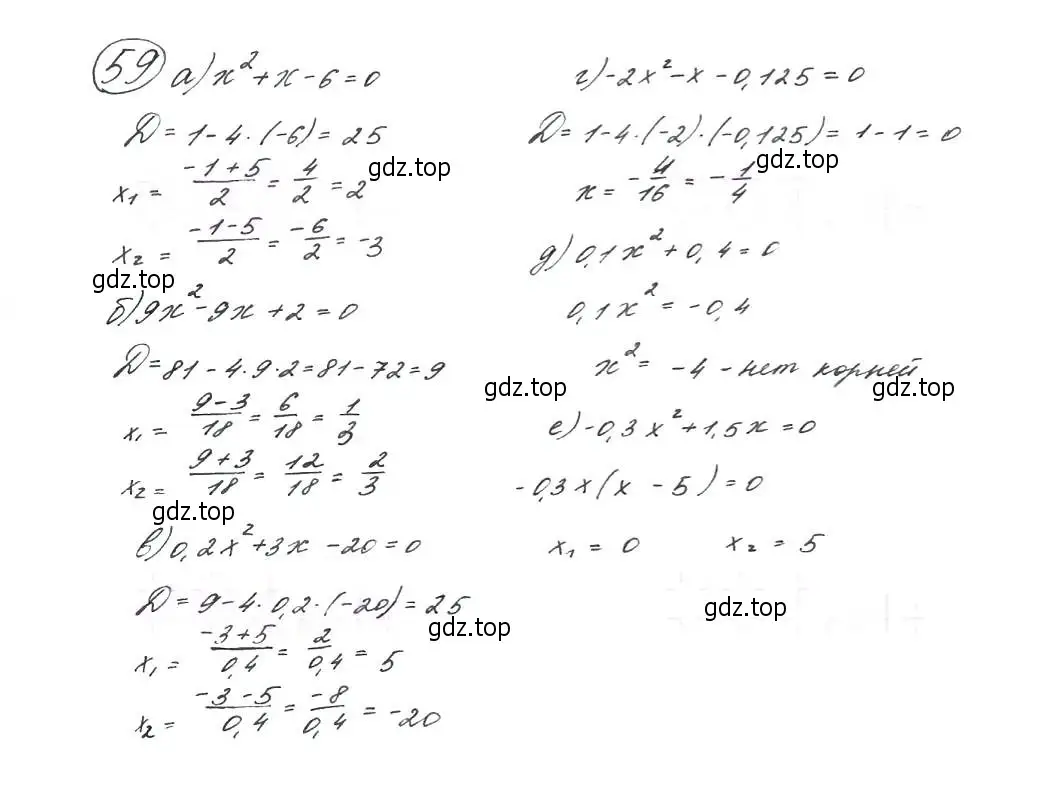 59 а) x² + x - 6 = 0
D = 1 - 4 · (-6) = 25
x₁ = (-1 + 5)/2 = 4/2 = 2
gdz.top
x₂ = (-1 - 5)/2 = -6/2 = -3
gdz.top
б) 9x² - 9x + 2 = 0
D = 81 - 4 · 9 · 2 = 81 - 72 = 9
x₁ = (9 - 3)/18 = 6/18 = 1/3
x₂ = (9 + 3)/18 = 12/18 = 2/3
gdz.top
в) 0,2x² + 3x - 20 = 0
D = 9 - 4 · 0,2 · (-20) = 25
gdz.top
x₁ = (-3 + 5)/0,4 = 2/0,4 = 5
x₂ = (-3 - 5)/0,4 = -8/0,4 = -20
г) -2x² - x - 0,125 = 0
D = 1 - 4 · (-2) · (-0,125) = 1 - 1 = 0
gdz.top
x = -4/16 = -1/4
д) 0,1x² + 0,4 = 0
0,1x² = -0,4
x² = -4 - нет корней
gdz.top
gdz.top
е) -0,3x² + 1,5x = 0
-0,3x(x - 5) = 0
x₁ = 0 x₂ = 5
gdz.top